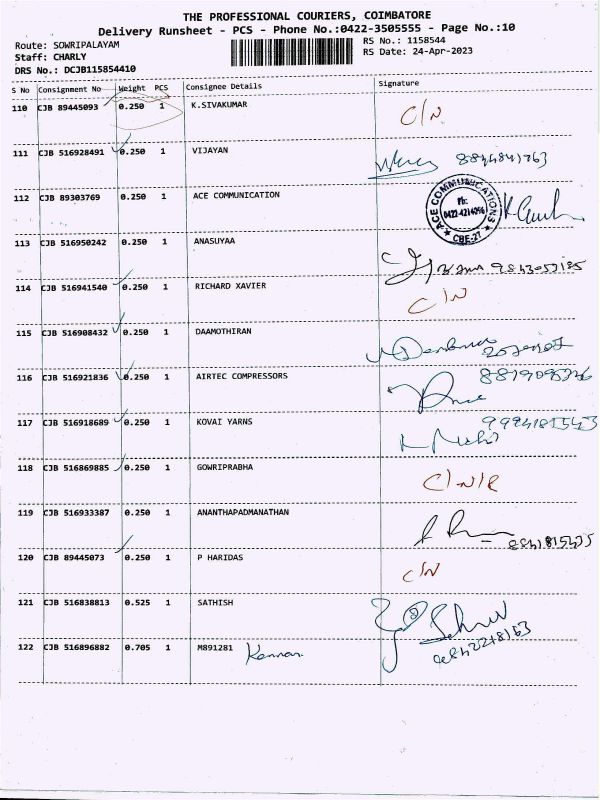 THE PROFESSIONAL COURIERS, COIMBATORE
Delivery Runsheet - PCS - Phone No.:0422-3505555 - Page No.:10
Route: SOWRIPALAYAM
RS No.: 1158544
Staff: CHARLY
RS Date: 24-Apr-2023
DRS No.: DCJB115854410
S No Consignment No Weight PCS Consignee Details Signature
110 CJB 89445093 0.250 1 K.SIVAKUMAR C/N
111 CJB 516928491 0.250 1 VIJAYAN
112 CJB 89303769 0.250 1 ACE COMMUNICATION
ACE COMMUNICATIONS
Ph:
0422-4214096
CBE-27
113 CJB 516950242 0.250 1 ANASUYAA
114 CJB 516941540 0.250 1 RICHARD XAVIER C/N
115 CJB 516908432 0.250 1 DAAMOTHIRAN
116 CJB 516921836 0.250 1 AIRTEC COMPRESSORS
117 CJB 516918689 0.250 1 KOVAI YARNS
118 CJB 516869885 0.250 1 GOWRIPRABHA C/N/R
119 CJB 516933387 0.250 1 ANANTHAPADMANATHAN
120 CJB 89445073 0.250 1 P HARIDAS C/N
121 CJB 516838813 0.525 1 SATHISH
122 CJB 516896882 0.705 1 M891281 Kannan